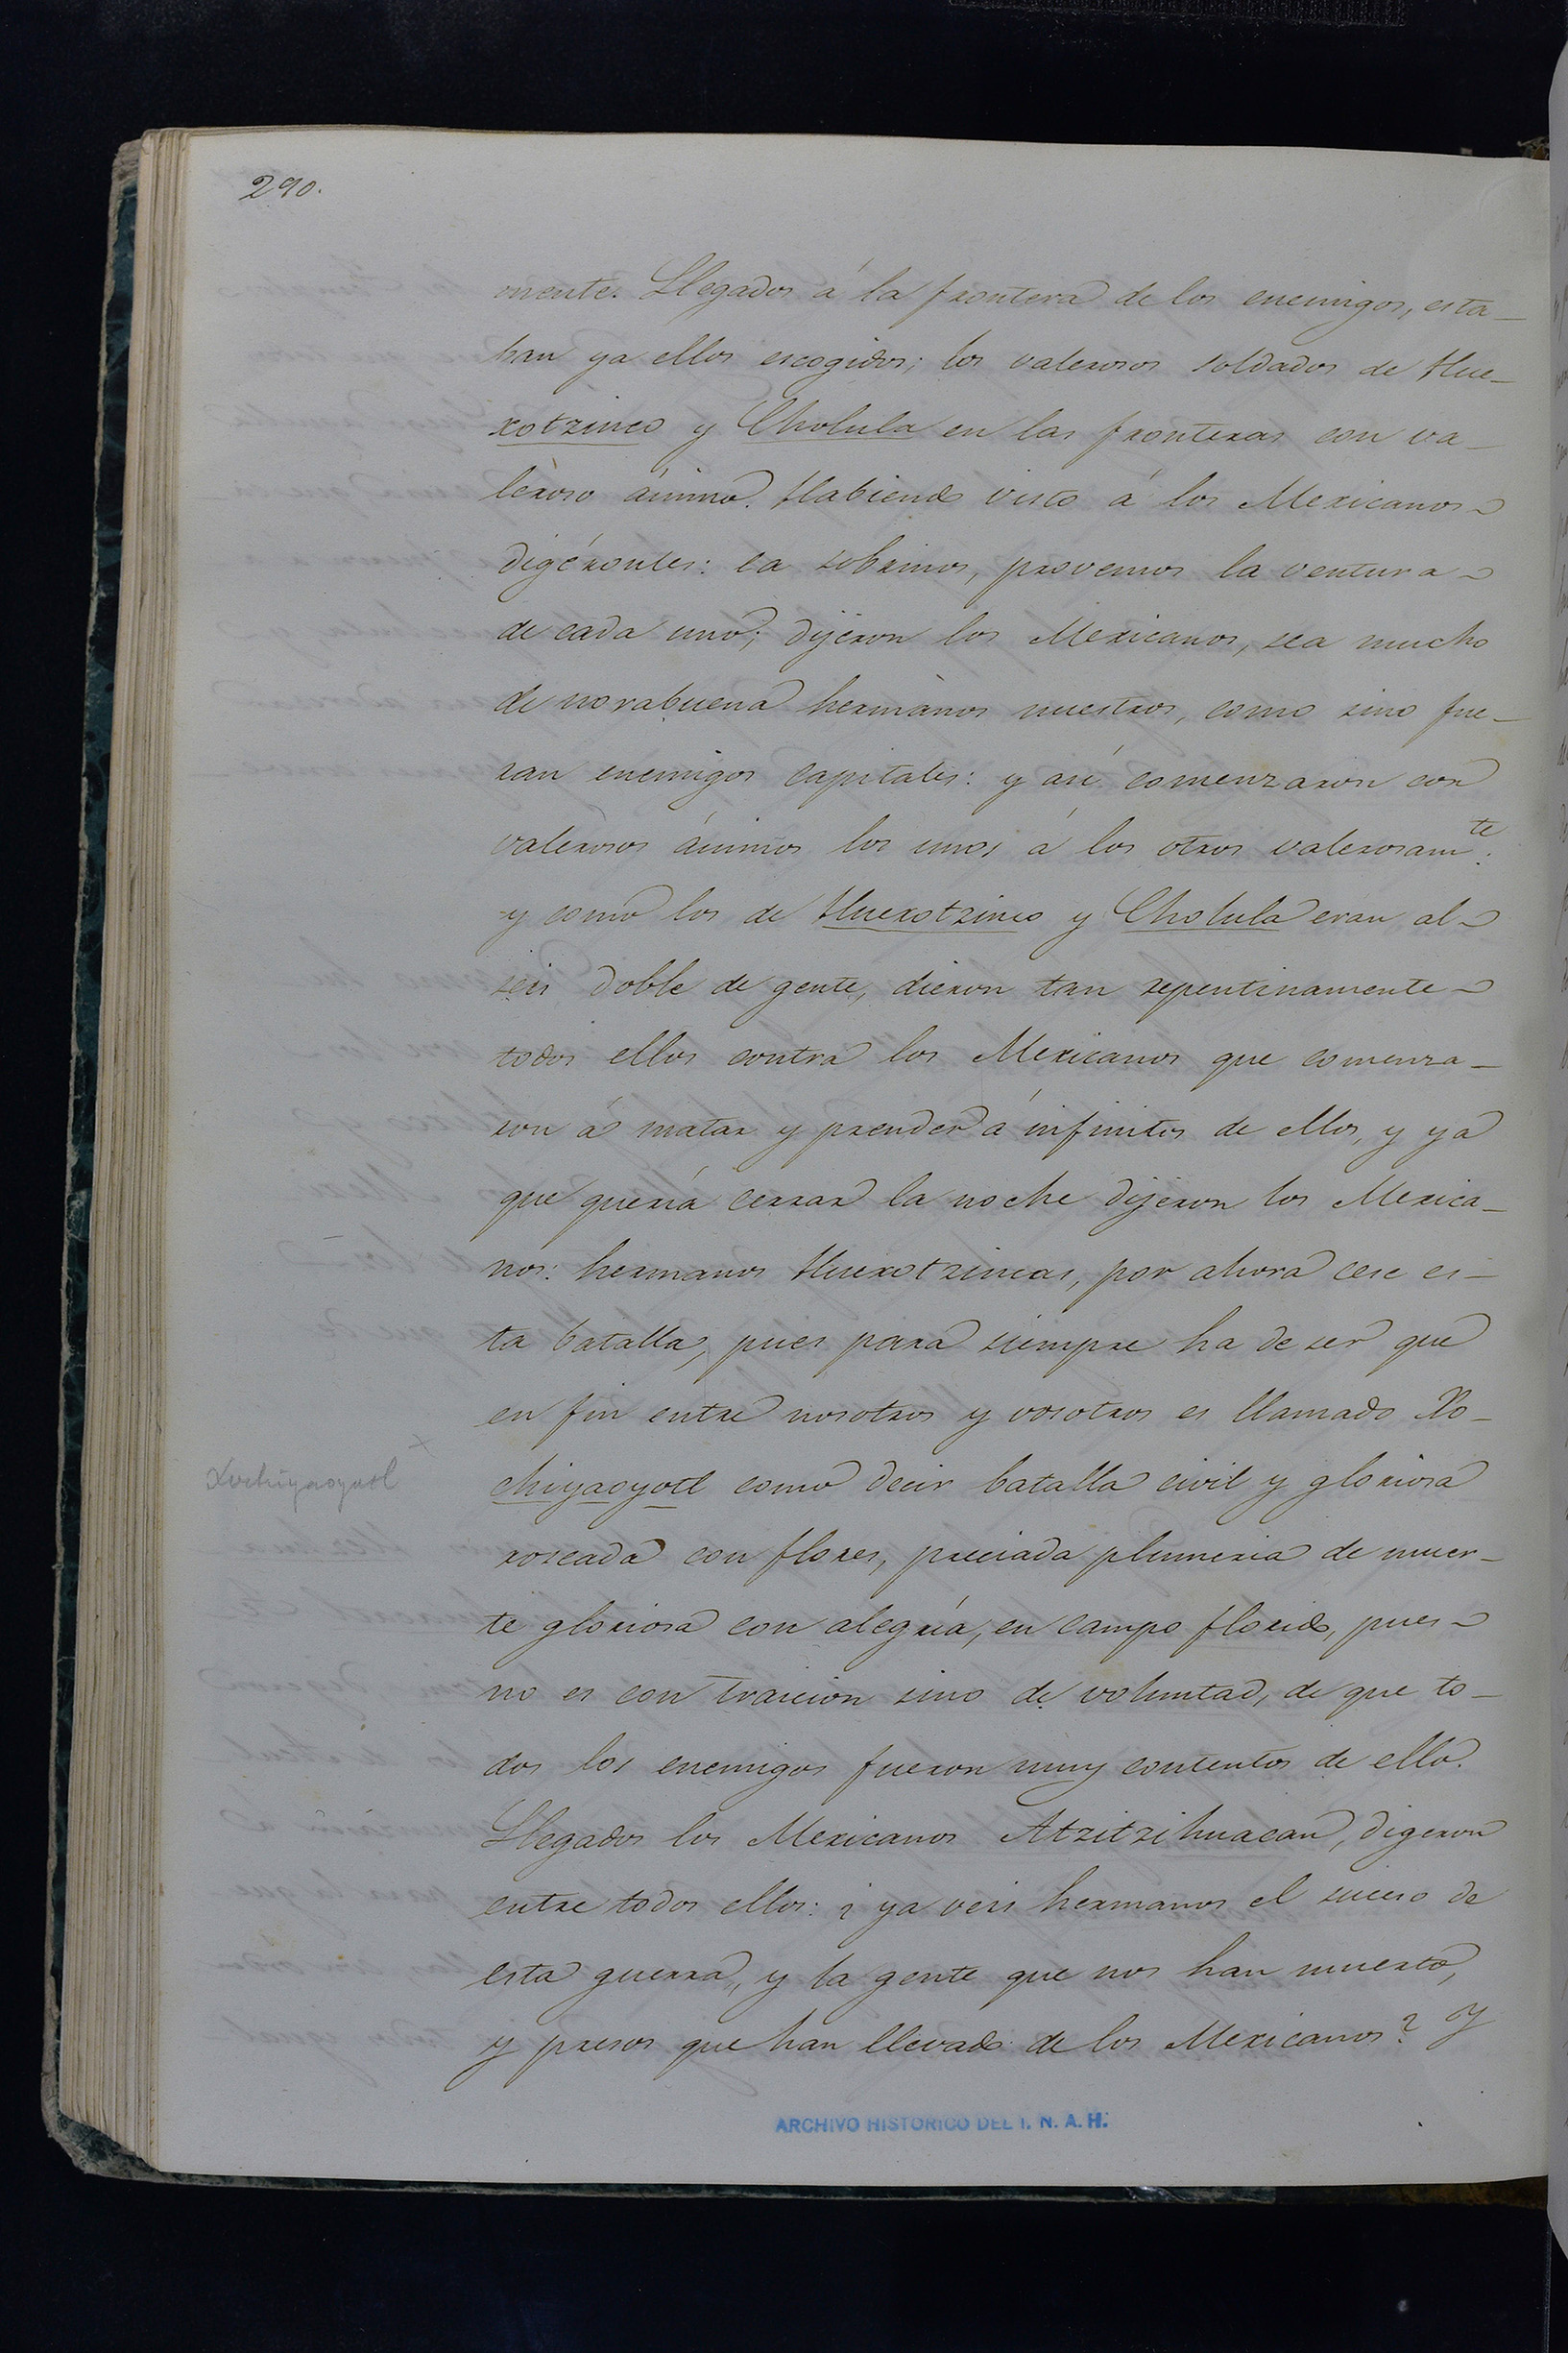 290.
mente. Llegados á la frontera de los enemigos, esta-
ban ya ellos escogidos; los valerosos soldados de Hue-
xotzinco y Cholula en las fronteras con va-
leroso ánimo. Habiendo visto á los Mexicanos
digéronles: ea sobrinos, provemos la ventura
de cada uno; dijeron los Mexicanos, sea mucho
de norabuena hermanos nuestros, como sino fue-
ran enemigos capitales: y así comenzaron con
valerosos ánimos los unos á los otros valerosamte.
y como los de Huexotzinco y Cholula eran al
seis doble de gente, dieron tan repentinamente
todos ellos contra los Mexicanos que comenza-
ron á matar y prender á infinitos de ellos, y ya
que quería cerrar la noche dijeron los Mexica-
nos: hermanos Huexotzincas, por ahora cese es-
ta batalla, pues para siempre ha de ser que
en fin entre nosotros y vosotros es llamado Xo-
chiyaoyotl como decir batalla civil y gloriosa
Xochiyaoyotl
roseada con flores, preciada plumeria de muer-
te gloriosa con alegría, en campo florido, pues
no es con traicion sino de voluntad, de que to-
dos los enemigos fueron muy contentos de ello.
Llegados los Mexicanos Atzitzihuacan, digeron
entre todos ellos: ¿ ya veis hermanos el suceso de
esta guerra, y la gente que nos han muerto,
y presos que han llevado de los Mexicanos? Y
ARCHIVO HISTORICO DEL I. N. A. H.